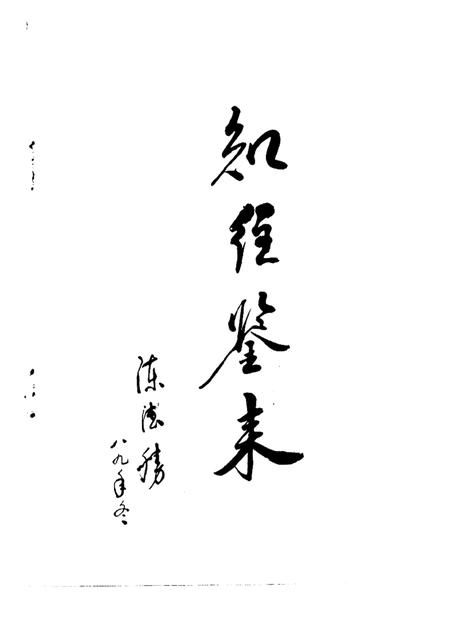 知往鉴来
陈德胜
八九年冬